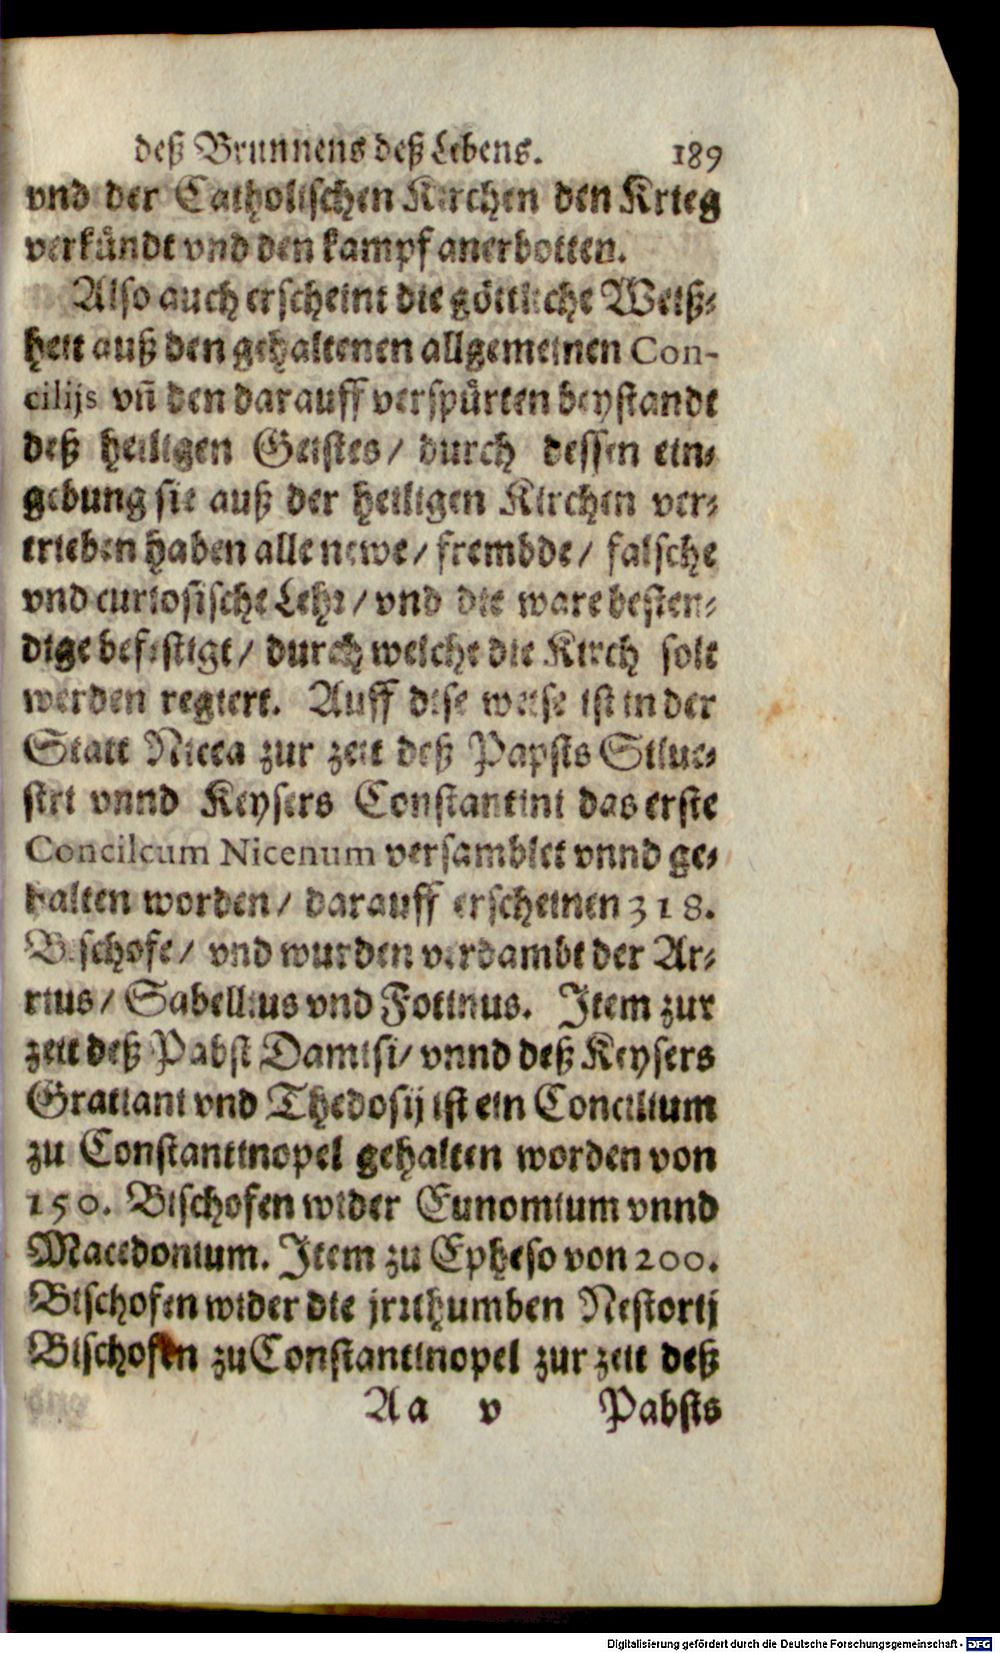 deß Brunnens deß Lebens. 189
vnd der Catholischen Kirchen den Krieg
verkůndt vnd den kampf anerbotten.
Also auch erscheint die göttliche Weiß-
heit auß den gehaltenen allgemeinen Con-
cilijs vñ den darauff verspůrten beystandt
deß heiligen Geistes/ durch dessen ein-
gebung sie auß der heiligen Kirchen ver-
trieben haben alle newe/ frembde/ falsche
vnd curiosische Lehr/ vnd die ware besten-
dige befestigt/ durch welche die Kirch solt
werden regiert. Auff dise weise ist in der
Statt Nicea zur zeit deß Papsts Silue-
stri vnnd Keysers Constantini das erste
Concilcum Nicenum versamblet vnnd ge-
halten worden/ darauff erscheinen 318.
Bischofe/ vnd wurden verdambt der Ar-
rius/ Sabellius vnd Fotinus. Item zur
zeit deß Pabst Damisi/ vnnd deß Keysers
Gratiani vnd Thedosij ist ein Concilium
zu Constantinopel gehalten worden von
150. Bischofen wider Eunomium vnnd
Macedonium. Item zu Epheso von 200.
Bischofen wider die jrrthumben Nestorij
Bischofen zu Constantinopel zur zeit deß
Aa v Pabsts
Digitalisierung gefördert durch die Deutsche Forschungsgemeinschaft - DFG